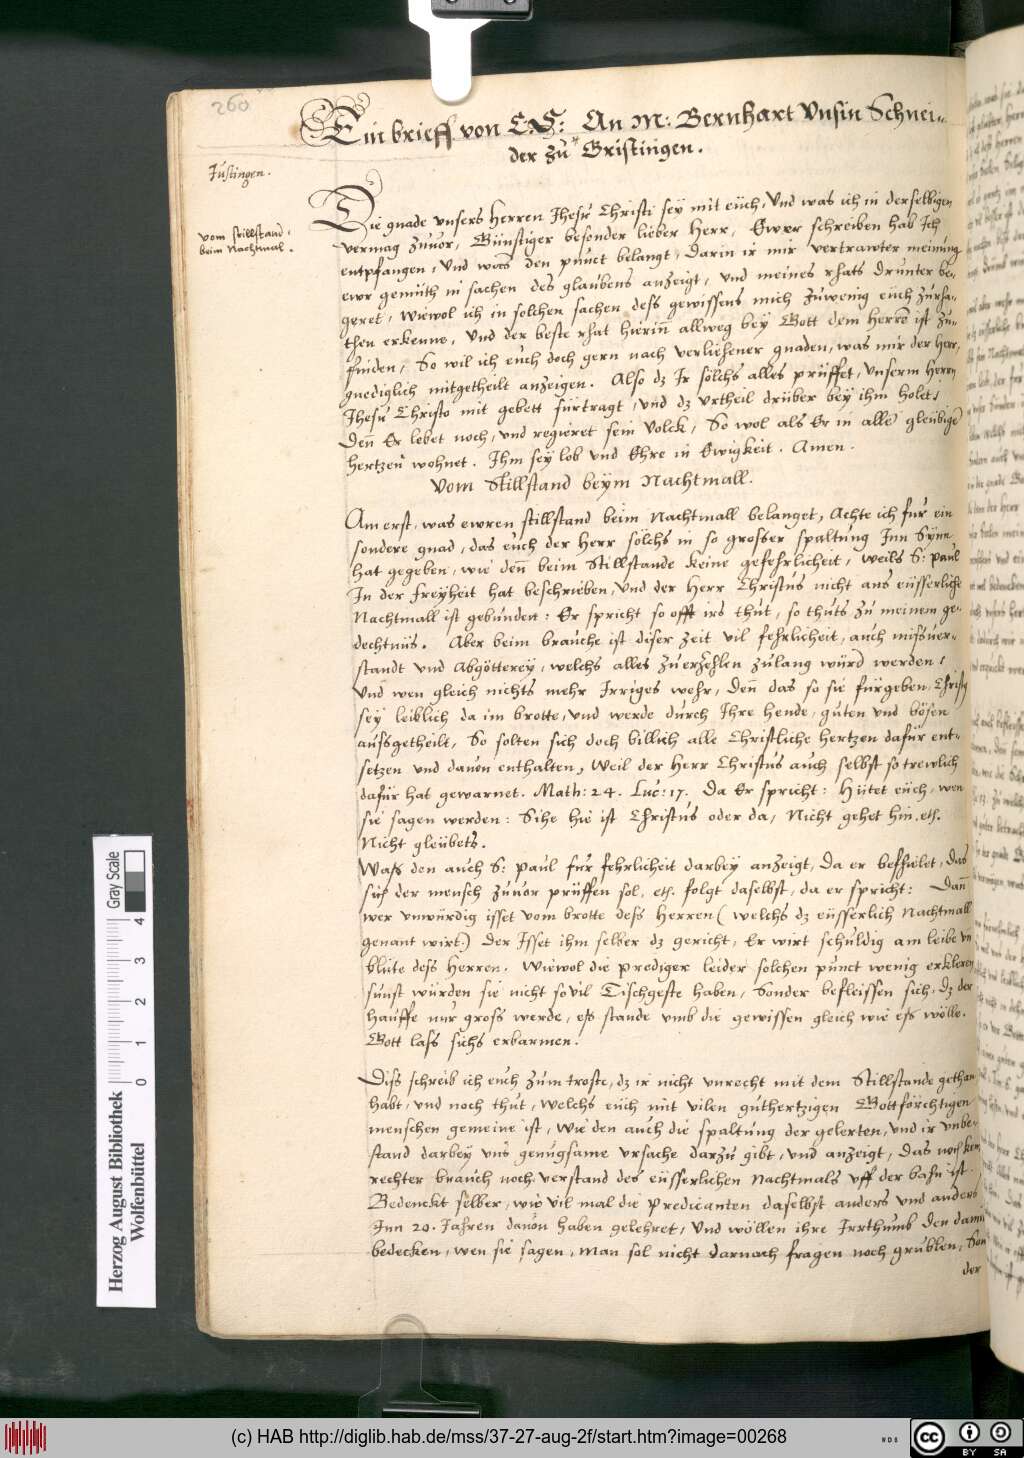 260
Ein brieff von C.S: An M: Bernhart Unsin Schnei-
der zu Gristingen.
Justingen.
vom stillstand
beim Nachtmal.
Die gnade unsers Herren Jhesu Christi sey mit euch, Und was ich in derselbigen
vermag zuvor, Günstiger besonder lieber Herr, Ewer schreiben hab Ich
entpfangen, Und was den punct belangt, darin ir mir vertrawter meinung
ewr gemüth in sachen des glaubens anzeigt, und meines rhats drunter be-
geret, wiewol ich in solchen sachen dess gewissens mich zuwenig euch zurha-
then erkenne, Und der beste rhat hierin allweg bey Gott dem Herrē ist zu-
finden, So wil ich euch doch gern nach verliehener gnaden, was mir der Herr,
gnediglich mitgetheilt anzeigen. Also dz Ir solchs alles prüffet, unserm Herrn
Jhesu Christo mit gebett fürtragt, und dz urtheil drüber bey ihm holet,
Denn Er lebet noch, und regieret sein Volck, So wol als Er in allē gleubigē
hertzen wohnet. Ihm sey lob und Ehre in Ewigkeit. Amen.
Vom Stillstand beym Nachtmall.
Am erst, was ewren stillstand beim Nachtmall belanget, Achte ich fur ein
sondere gnad, das euch der Herr solchs in so grosser spaltung Inn Synn
hat gegeben, wie denn beim Stillstande keine gefehrlicheit, weils S: Paul
In der freyheit hat beschrieben, Und der Herr Christus nicht ans eusserliche
Nachtmall ist gebunden: Er spricht so offt irs thut, so thuts zu meinem ge-
dechtnus. Aber beim brauche ist diser zeit vil fehrlicheit, auch missver-
standt und Abgötterey, welchs alles zuerzehlen zulang würd werden,
Und wen gleich nichts mehr Irriges wehr, denn das so sie fürgeben, Christus
sey leiblich da im brotte, und werde durch Ihre hende, guten und bösen
aussgetheilt, So solten sich doch billich alle Christliche hertzen dafür ent-
setzen und davon enthalten, Weil der Herr Christus auch selbst so trewlich
dafür hat gewarnet. Math: 24. Luc: 17. Da Er spricht: Hütet euch, wen
sie sagen werden: Sihe hie ist Christus oder da, Nicht gehet hin. etc.
Nicht gleubets.
Wass den auch S: Paul fur fehrlicheit darbey anzeigt, Da er befhielet, das
sich der mensch zuvor prüffen sol, etc. folgt daselbst, da er spricht: Dann
wer unwürdig isset vom brotte dess Herren (welchs dz eusserlich Nachtmall
genant wirt) der Isset ihm selber dz gericht, Er wirt schuldig am leibe un
blute dess Herren. Wiewol die prediger leider solchen punct wenig erkleren
sunst würden sie nicht sovil Tischgeste haben, Sonder befleissen sich, dz der
hauffe nur gross werde, ess stande umb die gewissen gleich wie ess wölle.
Gott lass sichs erbarmen.
Diss schreib ich euch zum troste, dz ir nicht unrecht mit dem Stillstande gethan
habt, und noch thut, welchs euch mit vilen guthertzigen Gottförchtigen
menschen gemeine ist, Wie den auch die spaltung der gelerten, und ir unbe-
stand darbey uns genugsame ursache darzu gibt, und anzeigt, das noch kein
rechter brauch noch verstand des eusserlichen Nachtmals uff der bahn ist.
Bedenckt selber, wie vil mal die Predicanten daselbst anders und anders
Inn 20. Jahren davon haben gelehret, Und wöllen ihre Irrthumb den damit
bedecken, wen sie sagen, man sol nicht darnach fragen noch grublen, Son
der
Herzog August Bibliothek
Wolfenbüttel
0 1 2 3 4
Gray Scale
(c) HAB http://diglib.hab.de/mss/37-27-aug-2f/start.htm?image=00268
WDB
cc BY SA